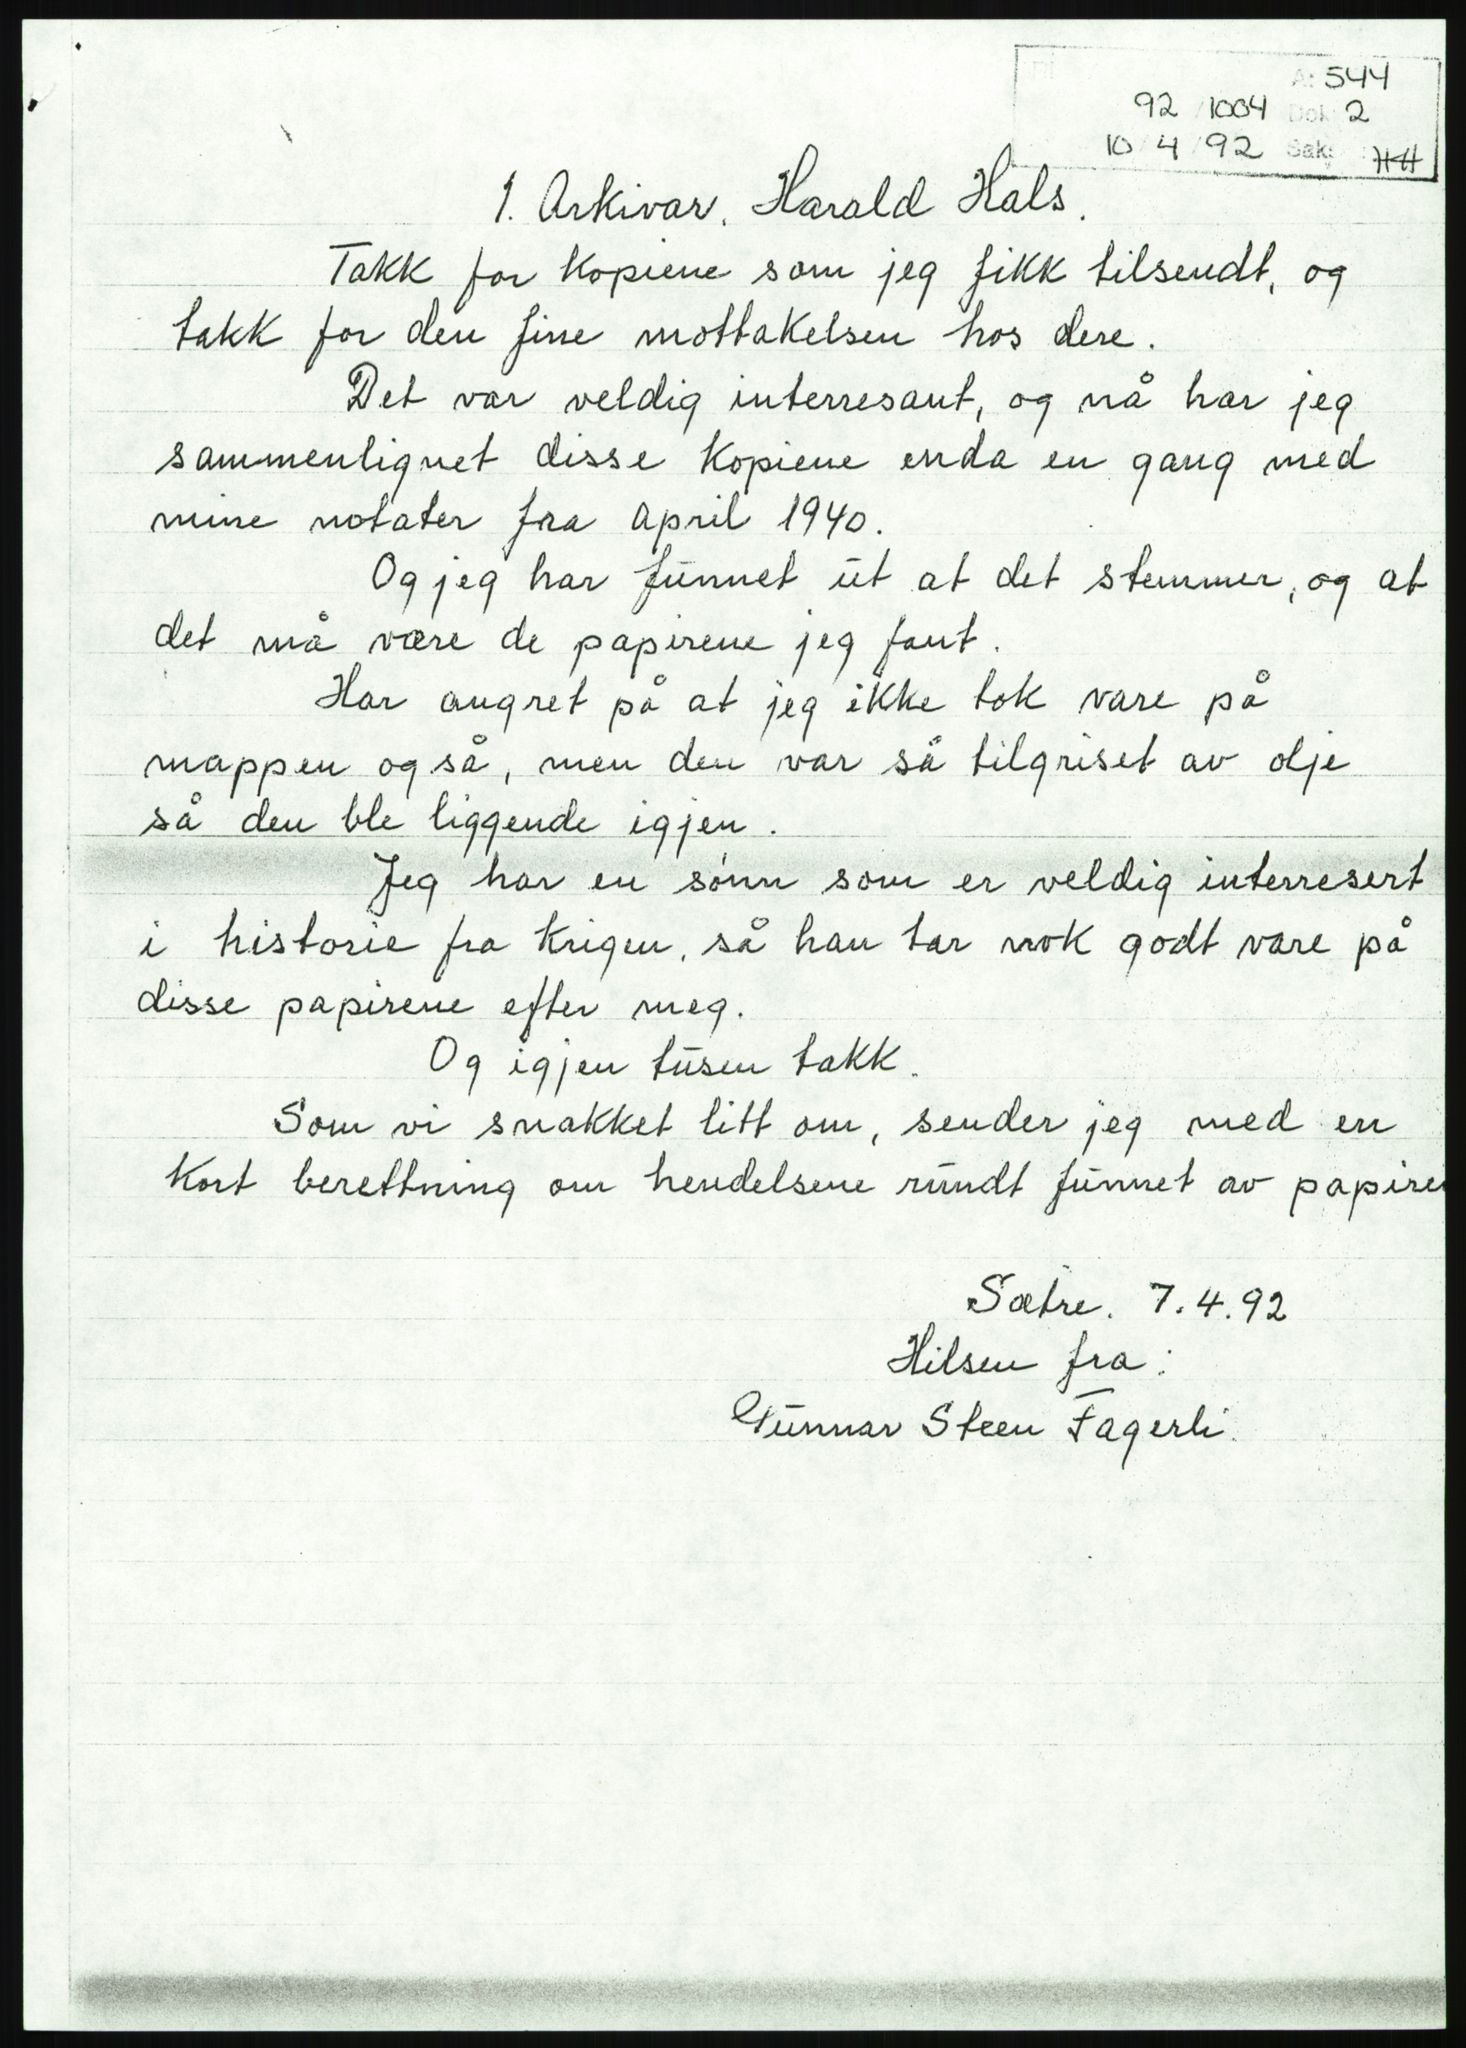 A: 544
92 / 1004 Dok 2
10 / 4 / 92 Sak: HH
1. Arkivar. Harald Hals.
Takk for kopiene som jeg fikk tilsendt, og
takk for den fine mottakelsen hos dere.
Det var veldig interresant, og nå har jeg
sammenlignet disse kopiene enda en gang med
mine notater fra april 1940.
Og jeg har funnet ut at det stemmer, og at
det må være de papirene jeg fant.
Har angret på at jeg ikke tok vare på
mappen også, men den var så tilgriset av olje
så den ble liggende igjen.
Jeg har en sønn som er veldig interresert
i historie fra krigen, så han tar nok godt vare på
disse papirene efter meg.
Og igjen tusen takk.
Som vi snakket litt om, sender jeg med en
kort berettning om hendelsene rundt funnet av papire
Sætre. 7.4.92
Hilsen fra:
Gunnar Steen Fagerli.